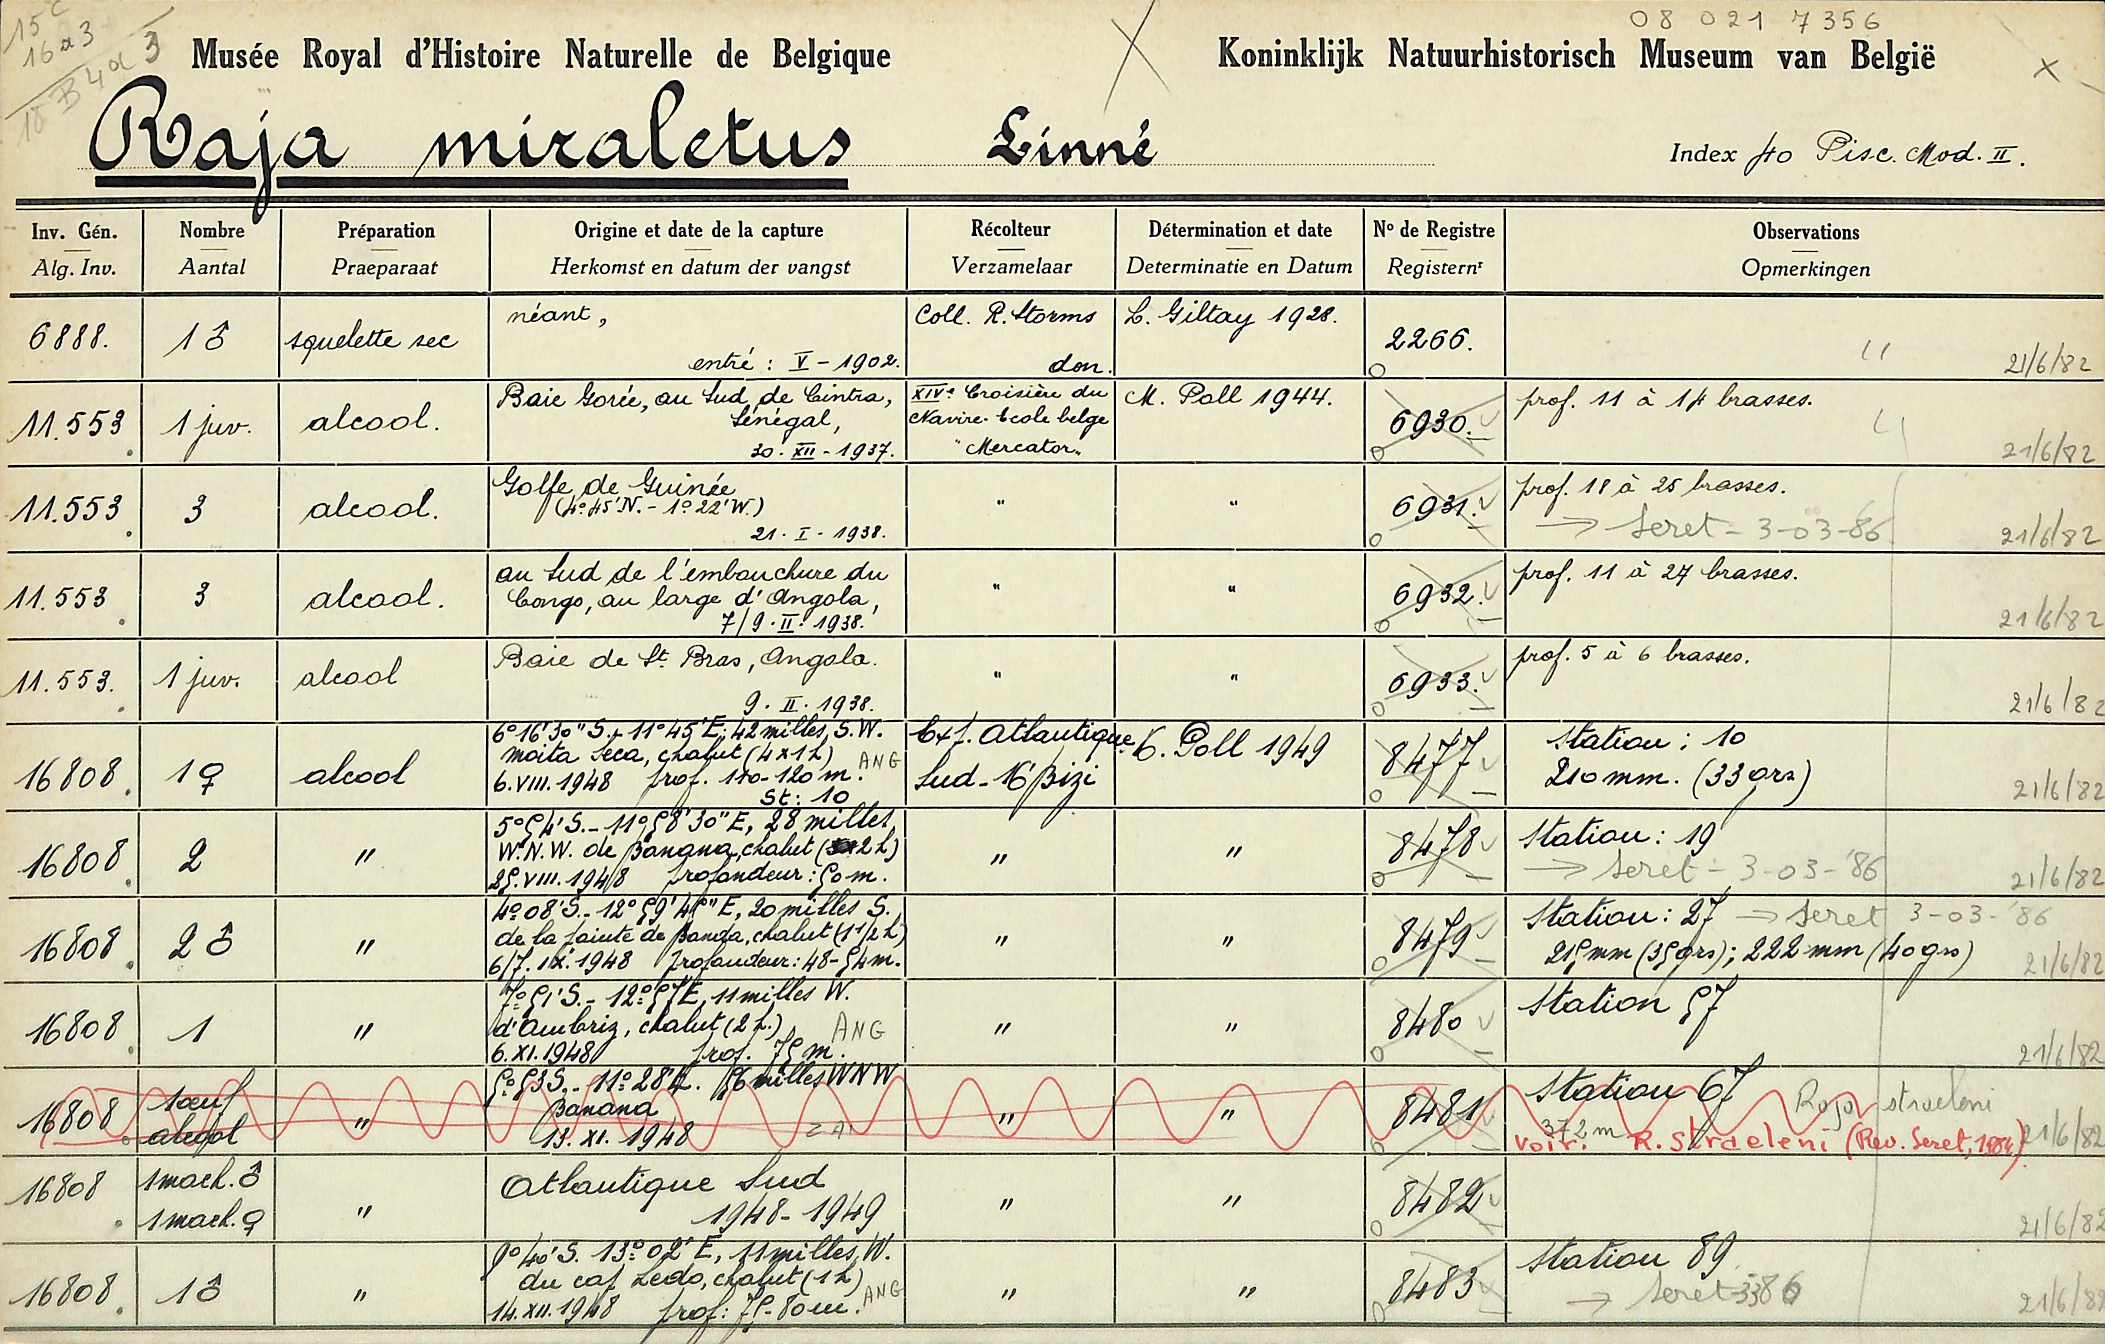 15 C
16 a 3
18 B 4 a 3
08 021 7356
Musée Royal d'Histoire Naturelle de Belgique
Koninklijk Natuurhistorisch Museum van België
Raja miraletus Linné
Index 40 Pisc. Mod. II.
Inv. Gén. Nombre Préparation Origine et date de la capture Récolteur Détermination et date No de Registre Observations
Alg. Inv. Aantal Praeparaat Herkomst en datum der vangst Verzamelaar Determinatie en Datum Registernr Opmerkingen
6888. 1 ♂ squelette sec
néant,
entré : V - 1902.
Coll. R. Storms
don.
L. Giltay 1928.
2266.
21/6/82
11.553 1 juv. alcool.
Baie Gorée, au Sud de Cintra,
Sénégal,
30. XII - 1937.
XIVe Croisière du
Navire-Ecole belge
"Mercator"
M. Poll 1944.
6930.
prof. 11 à 14 brasses.
21/6/82
11.553 3 alcool.
Golfe de Guinée
(4° 45' N. - 1° 22' W.)
21. I - 1938.
" "
6931.
prof. 18 à 25 brasses.
→ Seret - 3-03-86
21/6/82
11.553 3 alcool.
au Sud de l'embouchure du
Congo, au large d'Angola,
7/9. II. 1938.
" "
6932.
prof. 11 à 27 brasses.
21/6/82
11.553. 1 juv. alcool
Baie de St Bras, Angola.
9. II. 1938.
" "
6933.
prof. 5 à 6 brasses.
21/6/82
16808. 1 ♀ alcool
6° 16' 30" S. + 11° 45' E; 42 milles, S.W.
moita Seca, chalut (4x1h) ANG
6. VIII. 1948 prof. 110-120 m.
St: 10
Ext. Atlantique
Sud - "Bizi
Poll 1949
8477
Station : 10
210 mm. (33 grs)
21/6/82
16808. 2 "
5° 54' S. - 11° 58' 30" E, 28 milles
W.N.W. de Banana, chalut (2h)
25. VIII. 1948 profondeur : 50 m.
" "
8478
Station : 19
→ Seret - 3-03-'86
21/6/82
16808. 2 ♂ "
4° 08' S. - 12° 59' 45" E, 20 milles S.
de la pointe de Banda, chalut (1 1/2 h)
6/7. IX. 1948 profondeur : 48-54 m.
" "
8479
Station : 27 → Seret 3-03-'86
215 mm (35 grs); 222 mm (40 grs)
21/6/82
16808. 1 "
7° 51' S. - 12° 57' E, 11 milles W.
d'Ambriz, chalut (2 h.) ANG
6. XI. 1948 prof. 75 m.
" "
8480
Station 57
21/6/82
16808. 1 œuf
alcool
"
5° 53 S. - 11° 28 56 milles WNW
Banana
13. XI. 1948
" "
8481
Station 67
Raja straeleni
372 m
voir: R. straeleni (Rev. Seret, 1984)
21/6/82
16808. 1 mach. ♂
1 mach. ♀
"
Atlantique Sud
1948-1949
" "
8482
21/6/82
16808. 1 ♂ "
9° 40' S. 13° 02' E, 11 milles, W.
du cap Ledo, chalut (1 h) ANG
14. XII. 1948 prof: 75-80 m.
" "
8483
Station 89
→ Seret
21/6/82